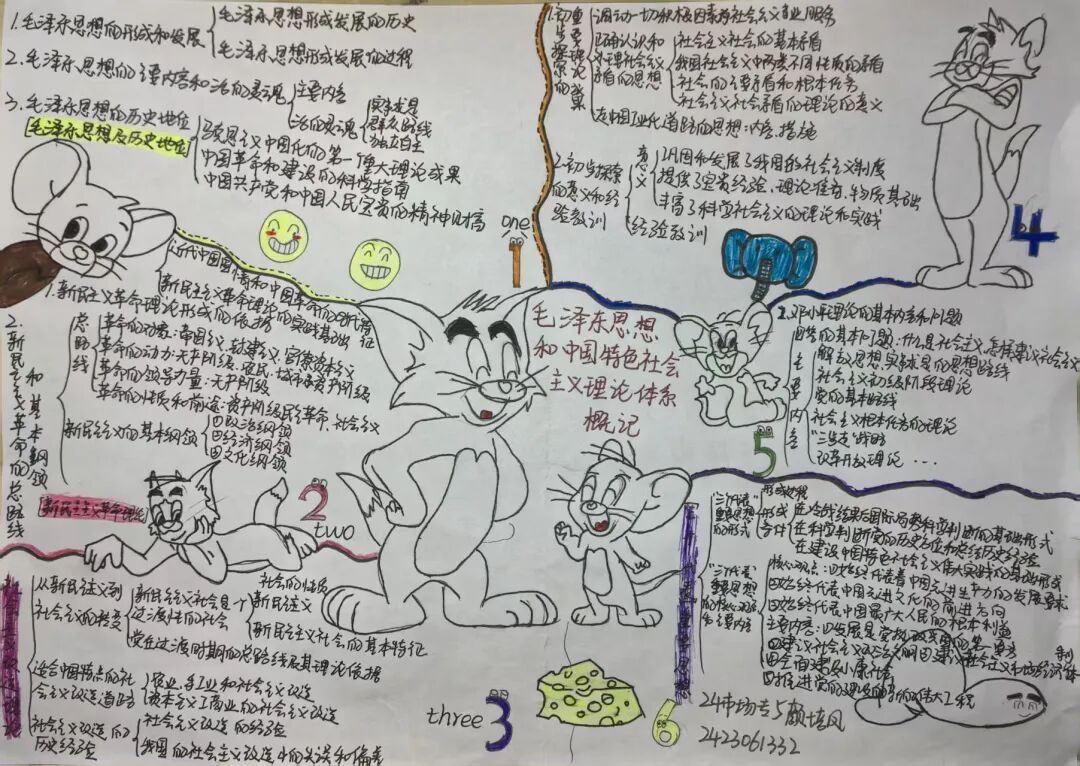 1.毛泽东思想的形成和发展
毛泽东思想形成发展的历史
毛泽东思想形成发展的过程
2.毛泽东思想的主要内容和活的灵魂
主要内容
活的灵魂
实事求是
群众路线
独立自主
3.毛泽东思想的历史地位
毛泽东思想及历史地位
马克思主义中国化的第一个重大理论成果
中国革命和建设的科学指南
中国共产党和中国人民宝贵的精神财富
one
1
1.初步探索的重要理论成果
调动一切积极因素为社会主义事业服务
正确认识和处理社会主义矛盾的思想
社会主义社会的基本矛盾
我国社会主义中两类不同性质的矛盾
社会的主要矛盾和根本任务
社会主义社会矛盾的理论的意义
走中国工业化道路的思想:内容、措施
2.初步探索的意义和经验教训
意义
巩固和发展了我国的社会主义制度
提供了宝贵经验、理论准备、物质基础
丰富了科学社会主义的理论和实践
经验教训
4
1.新民主主义革命理论形成的依据
近代中国国情和中国革命的时代特征
新民主主义革命理论的实践基础
2.新民主主义革命的总路线和基本纲领
总路线
革命的对象:帝国主义、封建主义、官僚资本主义
革命的动力:无产阶级、农民、城市小资产阶级
革命的领导力量:无产阶级
革命的性质和前途:资产阶级民主革命、社会主义
新民主主义的基本纲领
①政治纲领
②经济纲领
③文化纲领
新民主主义革命理论
2
two
毛泽东思想
和中国特色社会
主义理论体系
概记
2.邓小平理论的基本内容和问题
回答的基本问题:什么是社会主义,怎样建设社会主义
主要内容
解放思想、实事求是的思想路线
社会主义初级阶段理论
党的基本路线
社会主义根本任务的理论
"三步走"战略
改革开放理论 ...
5
从新民主主义到社会主义的转变
新民主主义社会是一个过渡性的社会
社会的性质
新民主主义
新民主主义社会的基本特征
党在过渡时期的总路线及其理论依据
适合中国特点的社会主义改造道路
农业、手工业和社会主义改造
资本主义工商业的社会主义改造
社会主义改造的历史经验
社会主义改造的经验
我国的社会主义改造中的失误和偏差
three
3
"三个代表"重要思想的形式
形成过程
形式条件
在冷战结束后国际局势科学判断的基础形式
在科学判断党的历史方位和总结历史经验
在建设中国特色社会主义伟大实践的基础形成
"三个代表"重要思想的核心观点和主要内容
核心观点:①始终代表着中国先进生产力的发展要求
②始终代表中国先进文化的前进方向
③始终代表中国最广大人民的根本利益
主要内容:①发展是党执政兴国的第一要务
②建立社会主义市场经济体制
③全面建设小康社会
6
24市场营5颜培凤
2423061332